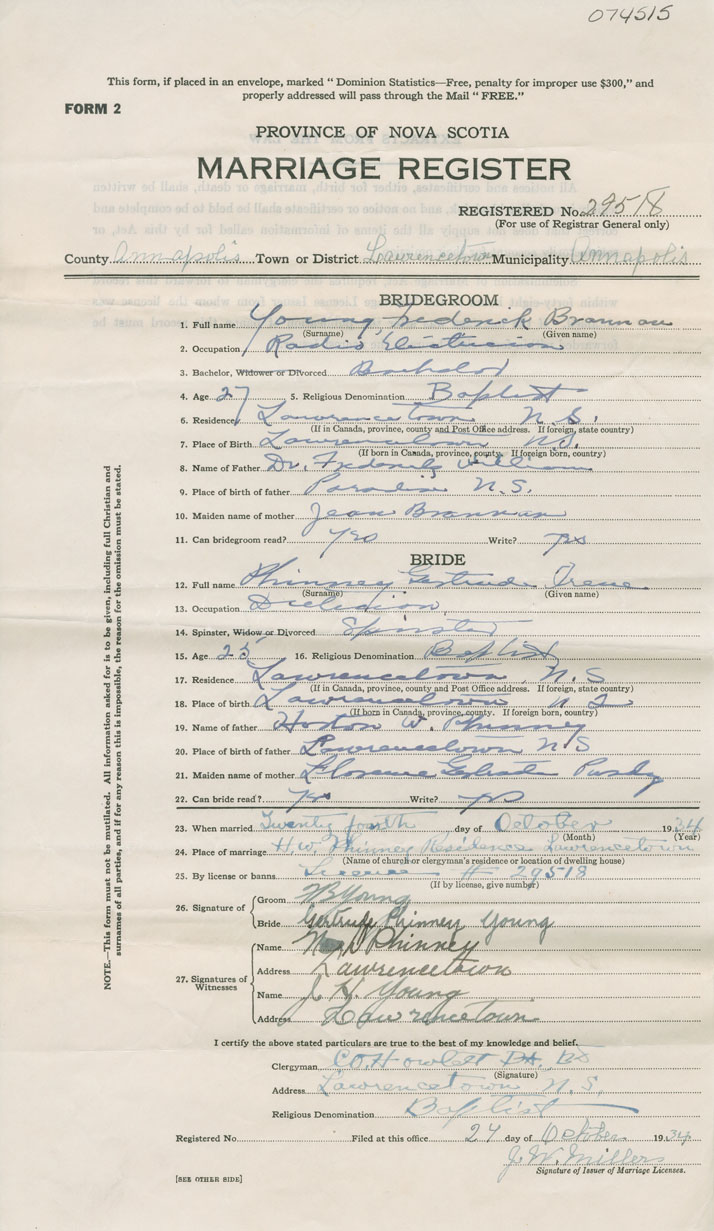 074515
This form, if placed in an envelope, marked "Dominion Statistics—Free, penalty for improper use $300," and
properly addressed will pass through the Mail "FREE."
FORM 2
PROVINCE OF NOVA SCOTIA
MARRIAGE REGISTER
REGISTERED No. 29518
(For use of Registrar General only)
County Annapolis Town or District Lawrencetown Municipality Annapolis
BRIDEGROOM
1. Full name Young, Frederick Brannan
(Surname) (Given name)
2. Occupation Radio Electrician
3. Bachelor, Widower or Divorced Bachelor
4. Age 27 5. Religious Denomination Baptist
6. Residence Lawrencetown N.S.
(If in Canada, province, county and Post Office address. If foreign, state country)
7. Place of Birth Lawrencetown N.S.
(If born in Canada, province, county. If foreign born, country)
8. Name of Father Dr. William
9. Place of birth of father Paradise N.S.
10. Maiden name of mother Jean Brannan
11. Can bridegroom read? Yes Write? yes
BRIDE
12. Full name Phinney Gertrude Irene
(Surname) (Given name)
13. Occupation Dietician
14. Spinster, Widow or Divorced Spinster
15. Age 25 16. Religious Denomination Baptist
17. Residence Lawrencetown, N.S
(If in Canada, province, county and Post Office address. If foreign, state country)
18. Place of birth Lawrencetown N S
(If born in Canada, province, county. If foreign born, country)
19. Name of father Horton W. Phinney
20. Place of birth of father Lawrencetown N S
21. Maiden name of mother Florence Purdy
22. Can bride read? yes Write? yes
23. When married Twenty fourth day of October 1934
(Month) (Year)
24. Place of marriage H.W. Phinney Residence Lawrencetown
(Name of church or clergyman's residence or location of dwelling house)
25. By license or banns License # 29518
(If by license, give number)
26. Signature of Groom Young
Bride Gertrude Phinney Young
27. Signatures of Witnesses
Name Phinney
Address Lawrencetown
Name J. H. Young
Address Lawrencetown
I certify the above stated particulars are true to the best of my knowledge and belief.
Clergyman C.O. Howlett
(Signature)
Address Lawrencetown N.S.
Religious Denomination Baptist
Registered No. Filed at this office 24 day of October 1934
J. W. Millers
Signature of Issuer of Marriage Licenses.
[SEE OTHER SIDE]
NOTE.—This form must not be mutilated. All information asked for is to be given, including full Christian and
surnames of all parties, and if for any reason this is impossible, the reason for the omission must be stated.